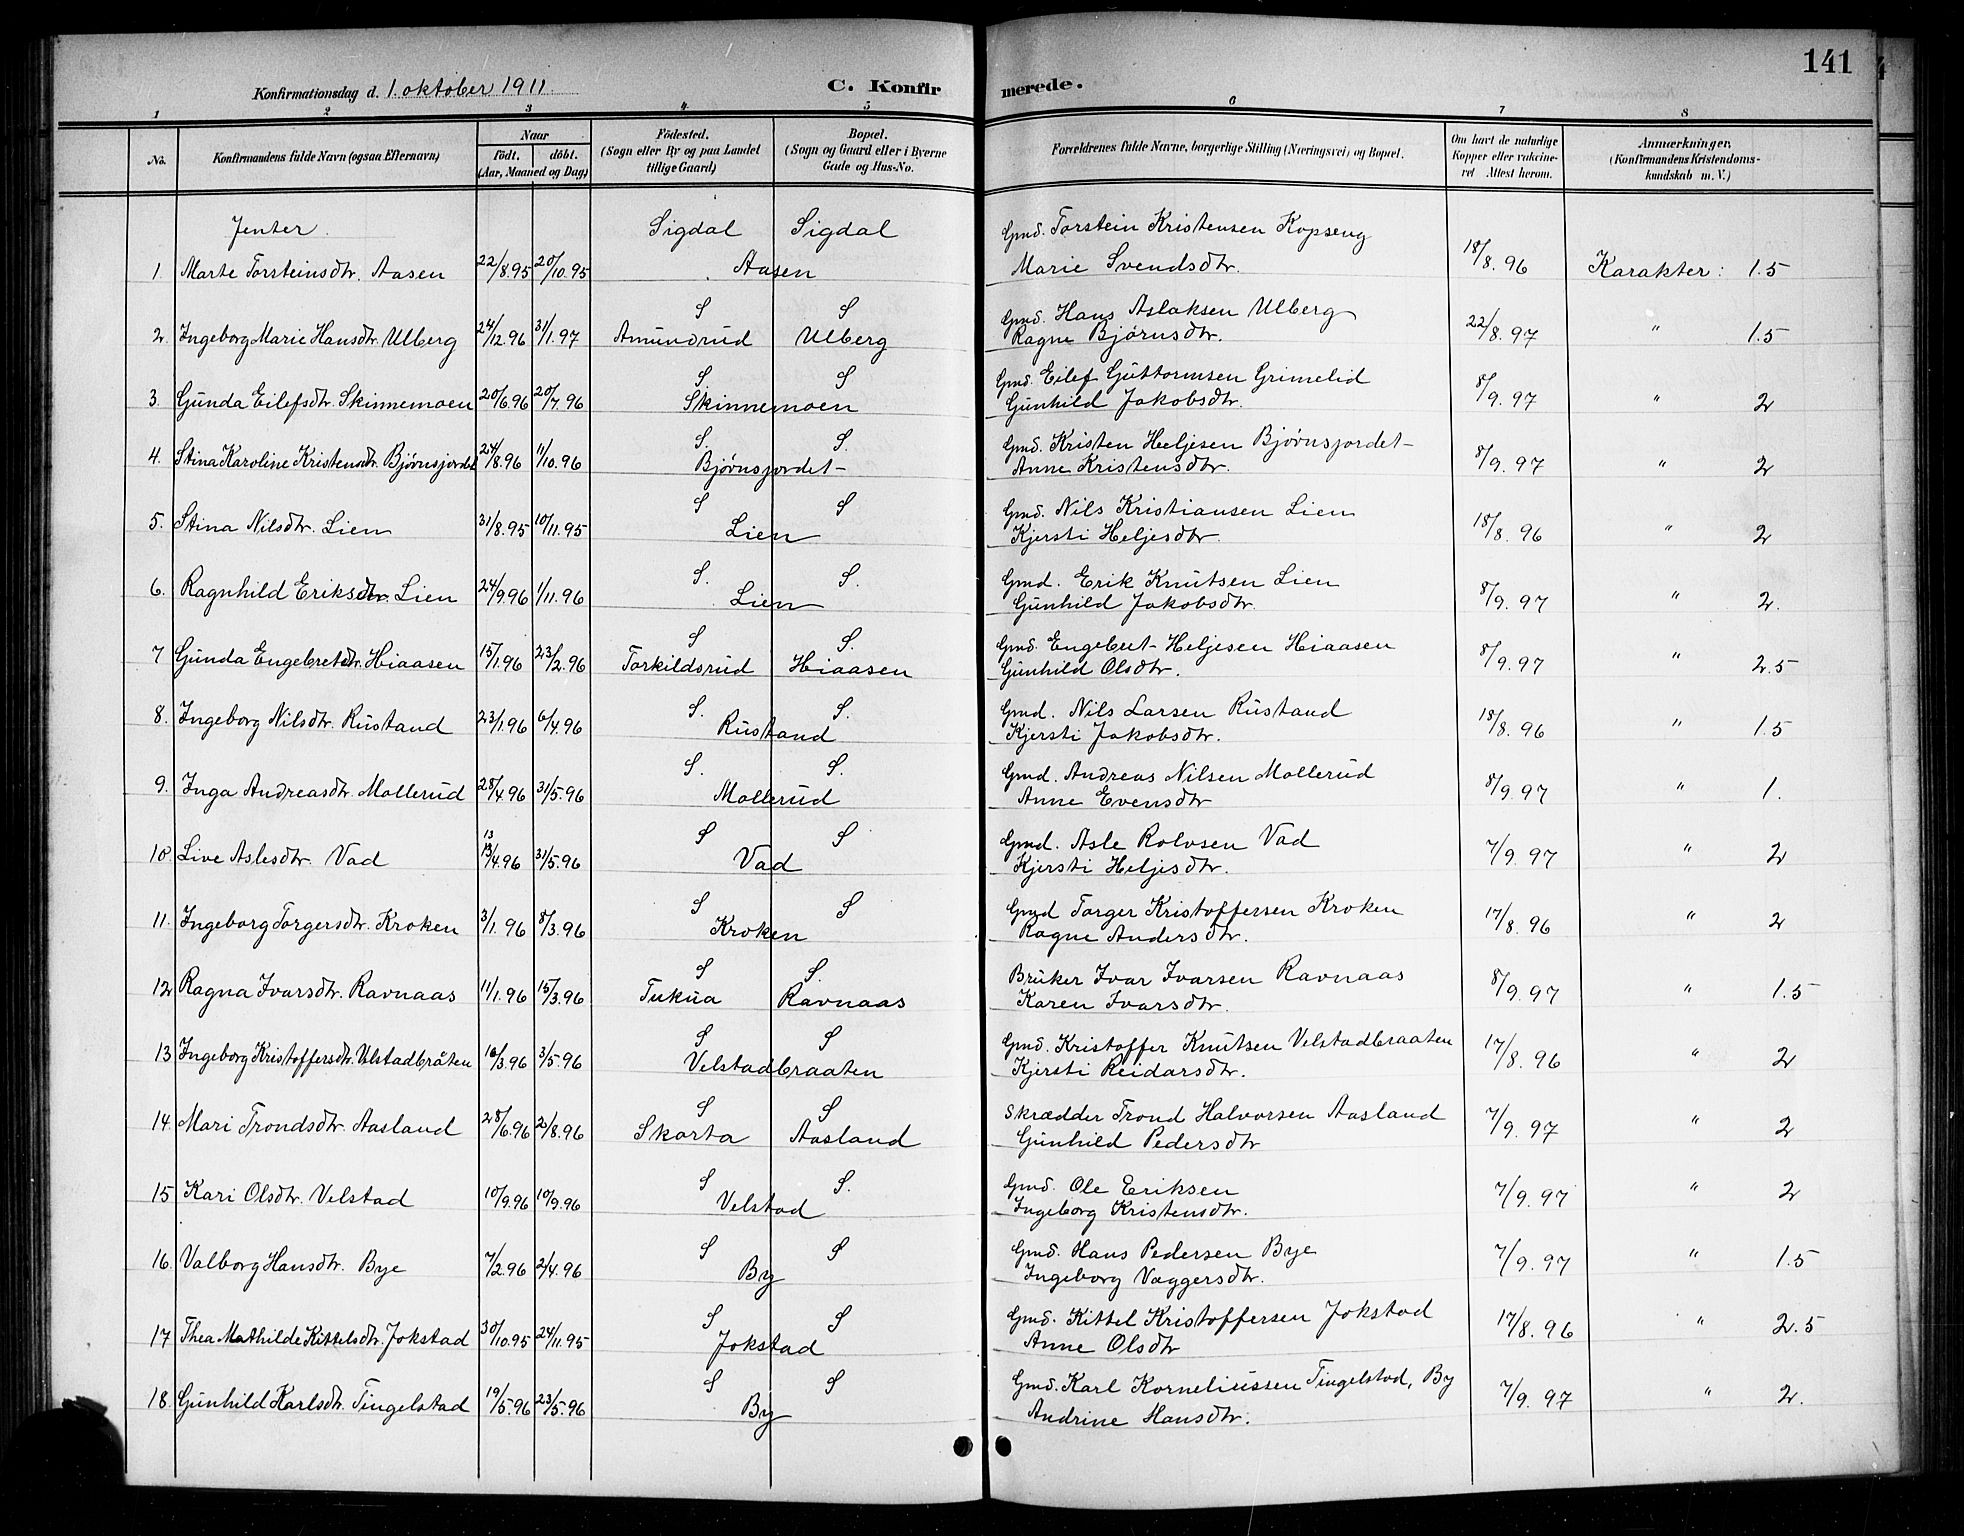 141
Konfirmationsdag d. 1. oktober 1911. C. Konfirmerede.
1 2 3 4 5 6 7 8
No. Konfirmandens fulde Navn (ogsaa Efternavn) Naar födt, döbt. (Aar, Maaned og Dag) Födested. (Sogn eller By og paa Landet tillige Gaard) Bopæl. (Sogn og Gaard eller i Byerne Gade og Hus-No. Forældrenes fulde Navne, borgerlige Stilling (Næringsvei) og Bopæl. Om havt de naturlige Kopper eller vaccineret Attest herom. Anmærkninger, (Konfirmandens Kristendomskundskab m. V.)
Jenter.
1. Marte Torsteinsdtr. Aasen 22/8.95 20/10.95 Sigdal Sigdal Aasen Gmd. Torstein Kristensen Kopseng Marie Svendsdtr. 18/8.96 Karakter: 1.5
2. Ingeborg Marie Hansdtr. Ulberg 24/12.96 31/1.97 S Amundrud S Ulberg Gmd. Hans Aslaksen Ulberg Ragne Bjørnsdtr. 22/8.97 " 1.5
3. Gunda Eilefsdtr. Skinnemoen 20/6.96 20/7.96 S. S Skinnemoen Gmd. Eilef Guttormsen Grimelid Gunhild Jakobsdtr. 8/9.97 " 2
4. Stina Karoline Kristensdtr. Bjørnsjordet 24/8.96 11/10.96 S. S. Bjørnsjordet Gmd. Kristen Heljesen Bjørnsjordet Anne Kristensdtr. 8/9.97 " 2
5. Stina Nilsdtr. Lien 31/8.95 10/11.95 S S Lien Gmd. Nils Kristiansen Lien Kjersti Heljesdtr. 18/8.96 " 2
6. Ragnhild Eriksdtr. Lien 24/9.96 1/11.96 S. S. Lien Gmd. Erik Knutsen Lien Gunhild Jakobsdtr. 8/9.97 " 2.
7 Gunda Engebretsdtr. Hiaasen 15/1.96 23/2.96 S Torkildsrud S. Hiaasen Gmd. Engebret Heljesen Hiaasen Gunhild Olsdtr. 8/9.97 " 2.5
8. Ingeborg Nilsdtr. Rustand 23/1.96 6/4.96 S. S. Rustand Gmd. Nils Larsen Rustand Kjersti Jakobsdtr. 18/8.96 " 1.5
9. Inga Andreasdtr. Mollerud 28/4.96 31/5.96 S. S. Mollerud Gmd. Andreas Nilsen Mollerud Anne Evensdtr 8/9.97 " 1.
10. Live Aslesdtr. Vad 13/4.96 31/5.96 S S Vad Gmd. Asle Rolvsen Vad Kjersti Heljesdtr. 7/9.97 " 2
11. Ingeborg Torgersdtr. Kroken 3/1.96 8/3.96 S S Kroken Gmd Torger Kristoffersen Kroken Ragne Andersdtr. 17/8.96 " 2
12 Ragna Ivarsdtr. Ravnaas 11/1.96 15/3.96 S Tukua S. Ravnaas Bruker Ivar Ivarsen Ravnaas Karen Ivarsdtr. 8/9.97 " 1.5
13 Ingeborg Kristoffersdtr. Velstadbråten 16/3.96 3/5.96 S S Velstadbraaten Gmd. Kristoffer Knutsen Velstadbraaten Kjersti Reidarsdtr. 17/8.96 " 2
14. Mari Trondsdtr. Aasland 28/6.96 2/8.96 S Skarta S Aasland Skrædder Trond Halvorsen Aasland Gunhild Pedersdtr 7/9.97 " 2
15 Kari Olsdtr. Velstad 10/9.96 10/9.96 S S. Velstad Gmd. Ole Eriksen Ingeborg Kristensdtr. 7/9.97 " 2
16. Valborg Hansdtr. Bye 7/2.96 2/4.96 S S By Gmd. Hans Pedersen Bye Ingeborg Vaggersdtr. 7/9.97 " 1.5
17 Thea Mathilde Kittelsdtr. Jokstad 30/10.95 24/11.95 S S Jokstad Gmd. Kittel Kristoffersen Jokstad Anne Olsdtr 17/8.96 " 2.5
18. Gunhild Karlsdtr. Tingelstad 19/5.96 23/5.96 S S By Gmd. Karl Korneliussen Tingelstad, By Andrine Hansdtr. 7/9.97 " 2.